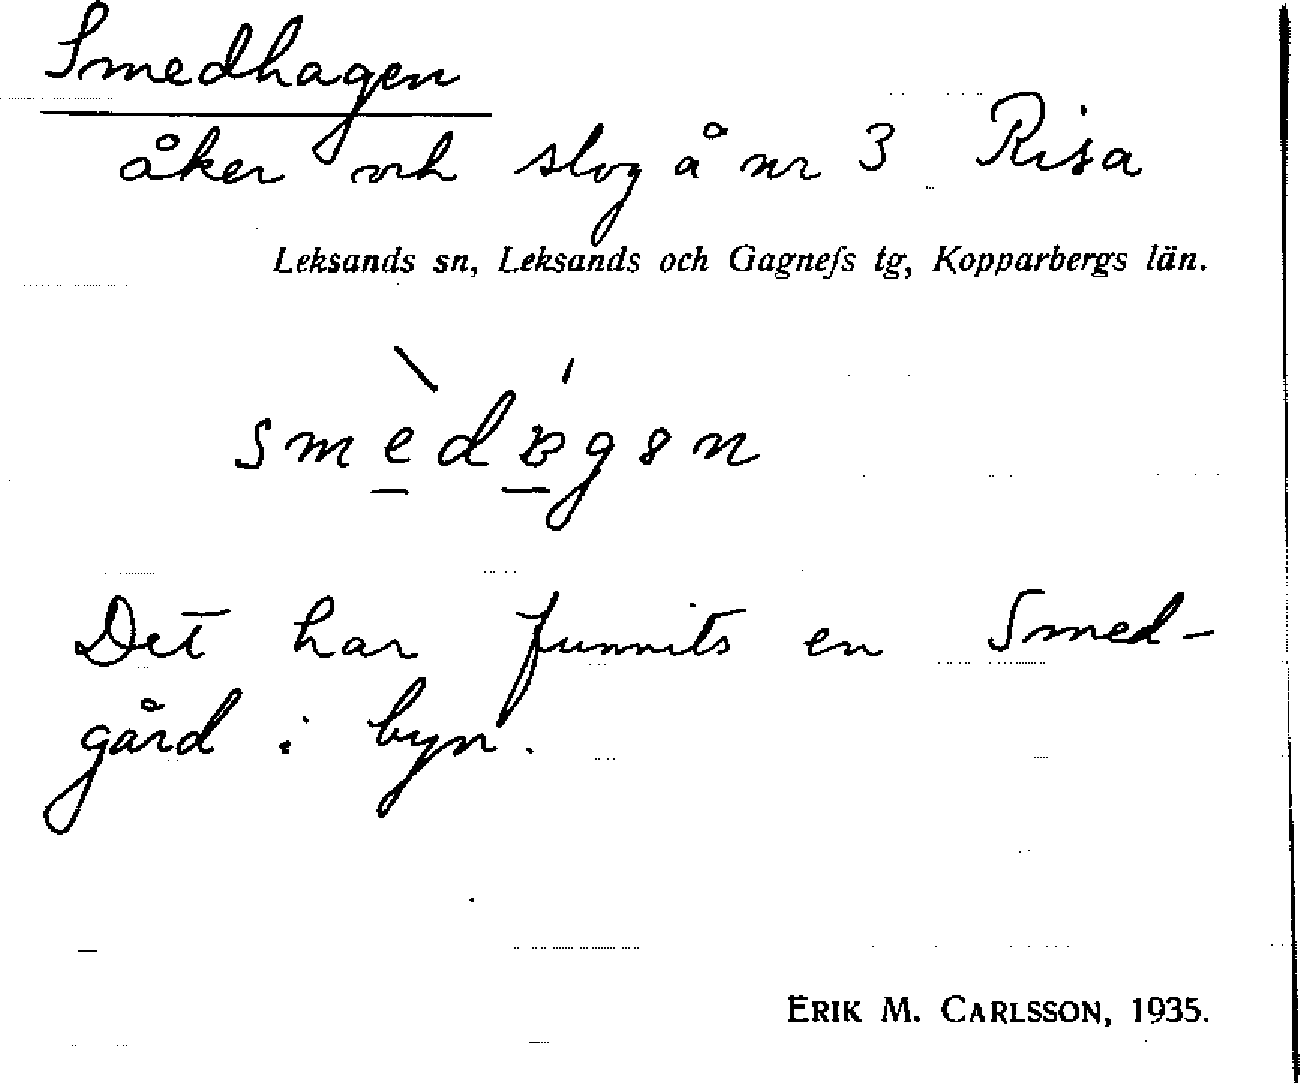 Smedhagen
åker och slog å nr 3 Risa
Leksands sn, Leksands och Gagnefs tg, Kopparbergs län.
Det har funnits en Smed-
gård i byn.
ERIK M. CARLSSON, 1935.